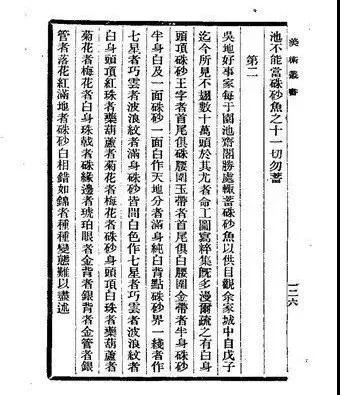 美術叢書
一二六
池不能當硃砂魚之十一切勿蓄
第二
吳地好事家每于園池齋閣勝處輒蓄硃砂魚以供目觀余家城中自戊子
迄今所見不翅數十萬頭於其尤者命工圖寫粹集旣多漫爾疏之有白身
頭頂硃砂王字者首尾俱硃腰圍玉帶者首尾俱白腰圍金帶者半身硃砂
半身白及一面硃砂一面白作天地分者滿身純白背點硃砂界一綫者作
七星者巧雲者波浪紋者滿身硃砂皆間白色作七星者巧雲者波浪紋者
白身頭頂紅珠者藥葫蘆者菊花者梅花者硃砂身頭頂白珠者藥葫蘆者
菊花者梅花者白身珠戟者硃緣邊者琥珀眼者金背者銀背者金管者銀
管者落花紅滿地者硃砂白相錯如錦者種種變態難以盡述